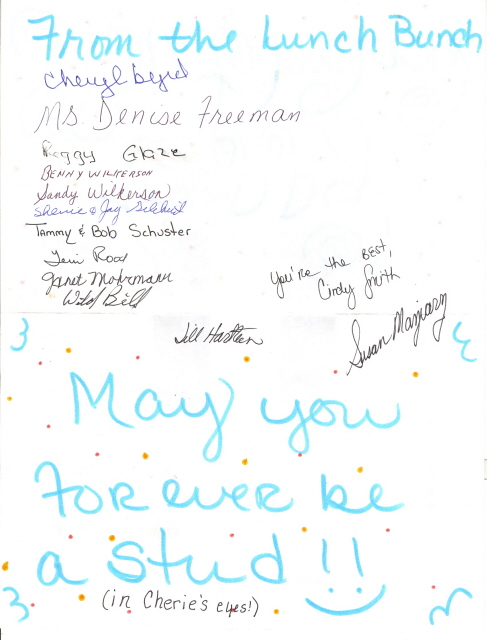 From the Lunch Bunch
Cheryl Byrd
Ms. Denise Freeman
Peggy Glaze
BENNY WILKERSON
Sandy Wilkerson
Sherrie & Jay Gilchrist
Tammy & Bob Schuster
Jeni Rood
Janet Mohrmann
Wild Bill
You're the BEST,
Cindy Smith
Jill
Susan
May you
Forever be
a stud!!
(in Cherie's eyes!)